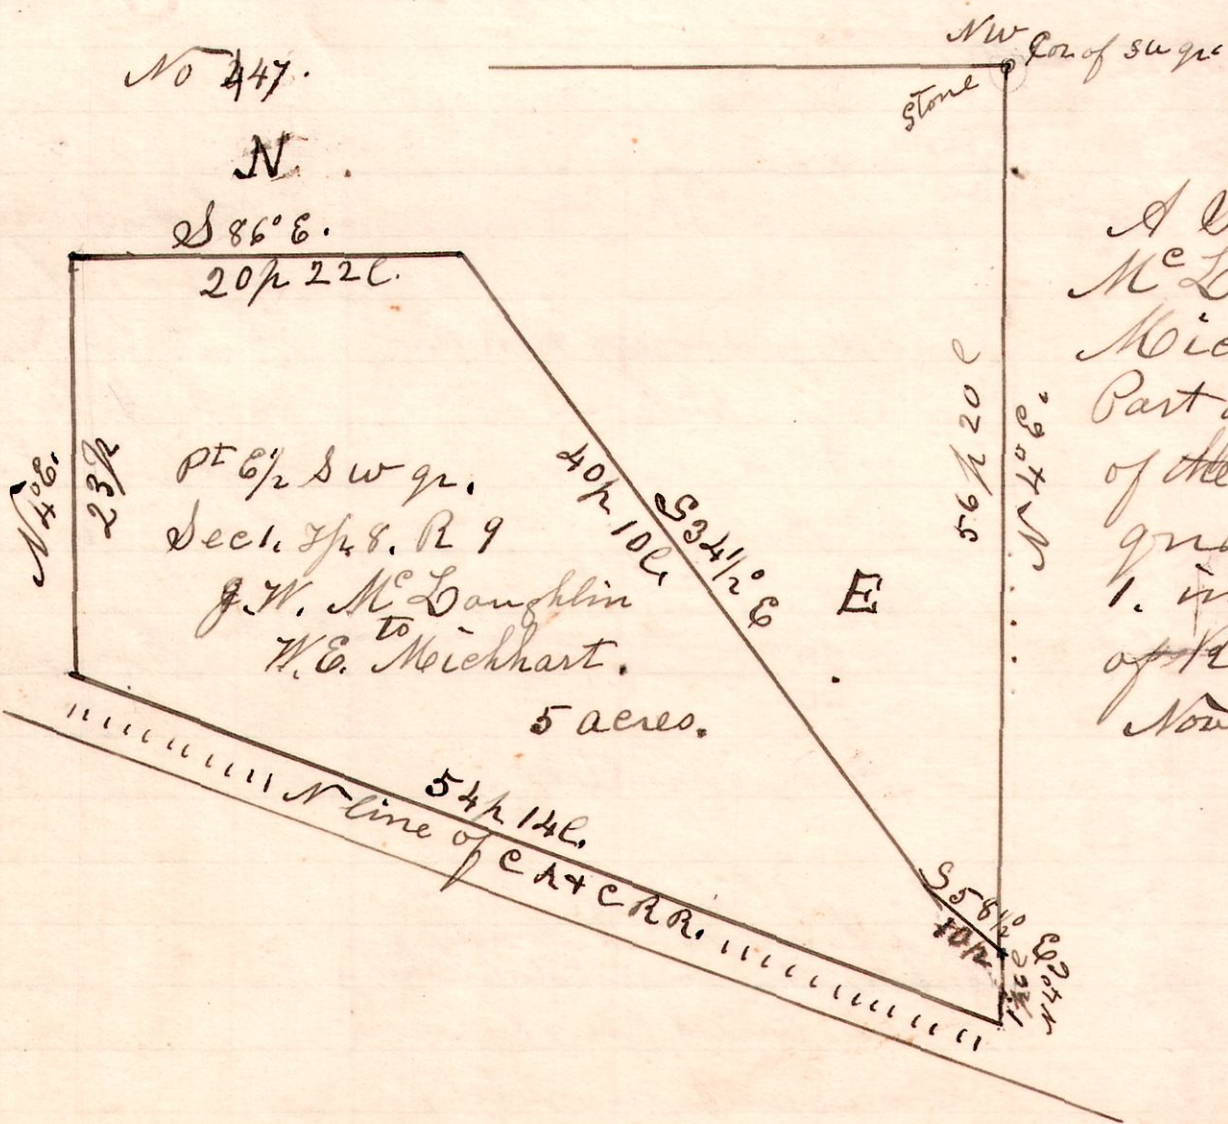 No 447.
NW Cor of SW qr
Stone
N.
S 86° E.
20p 22l.
N 4° E.
23p
Pt E1/2 S W qr.
Sec 1. Tp. 8. R 9
J. W. McLaughlin
to
W. E. Michhart.
5 acres.
40p 10l.
S 34 1/2° E
E
56p 20l
N 4° E.
S 58 1/2° E
10p
N 4° E
54p 14l.
N line of C A & C R R.
A
Mc L
Mic
Part
of the
qua
1. in
of
Nov